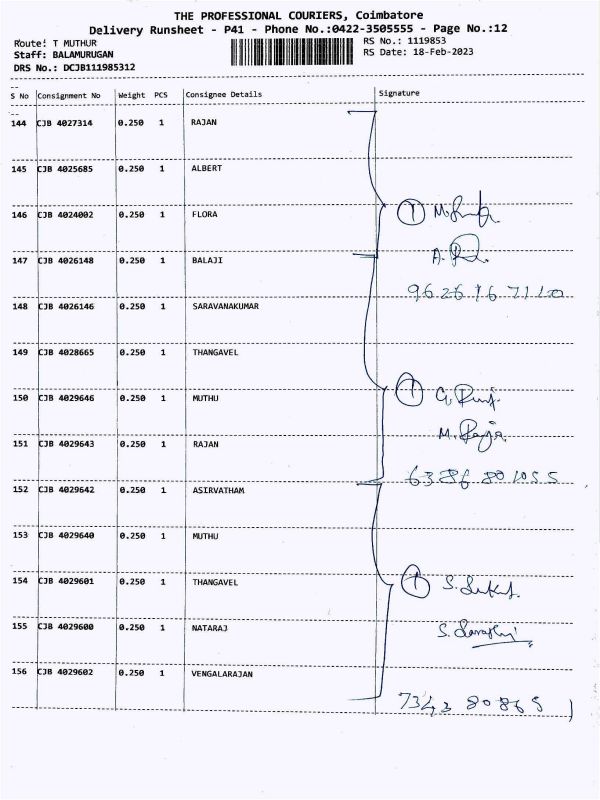 THE PROFESSIONAL COURIERS, Coimbatore
Delivery Runsheet - P41 - Phone No.:0422-3505555 - Page No.:12
Route: T MUTHUR
RS No.: 1119853
Staff: BALAMURUGAN
RS Date: 18-Feb-2023
DRS No.: DCJB111985312
S No Consignment No Weight PCS Consignee Details Signature
144 CJB 4027314 0.250 1 RAJAN
145 CJB 4025685 0.250 1 ALBERT
146 CJB 4024002 0.250 1 FLORA
147 CJB 4026148 0.250 1 BALAJI
9626167110
148 CJB 4026146 0.250 1 SARAVANAKUMAR
149 CJB 4028665 0.250 1 THANGAVEL
150 CJB 4029646 0.250 1 MUTHU
M. Raja
151 CJB 4029643 0.250 1 RAJAN
6386801055
152 CJB 4029642 0.250 1 ASIRVATHAM
153 CJB 4029640 0.250 1 MUTHU
154 CJB 4029601 0.250 1 THANGAVEL
155 CJB 4029600 0.250 1 NATARAJ
156 CJB 4029602 0.250 1 VENGALARAJAN
7343 80865